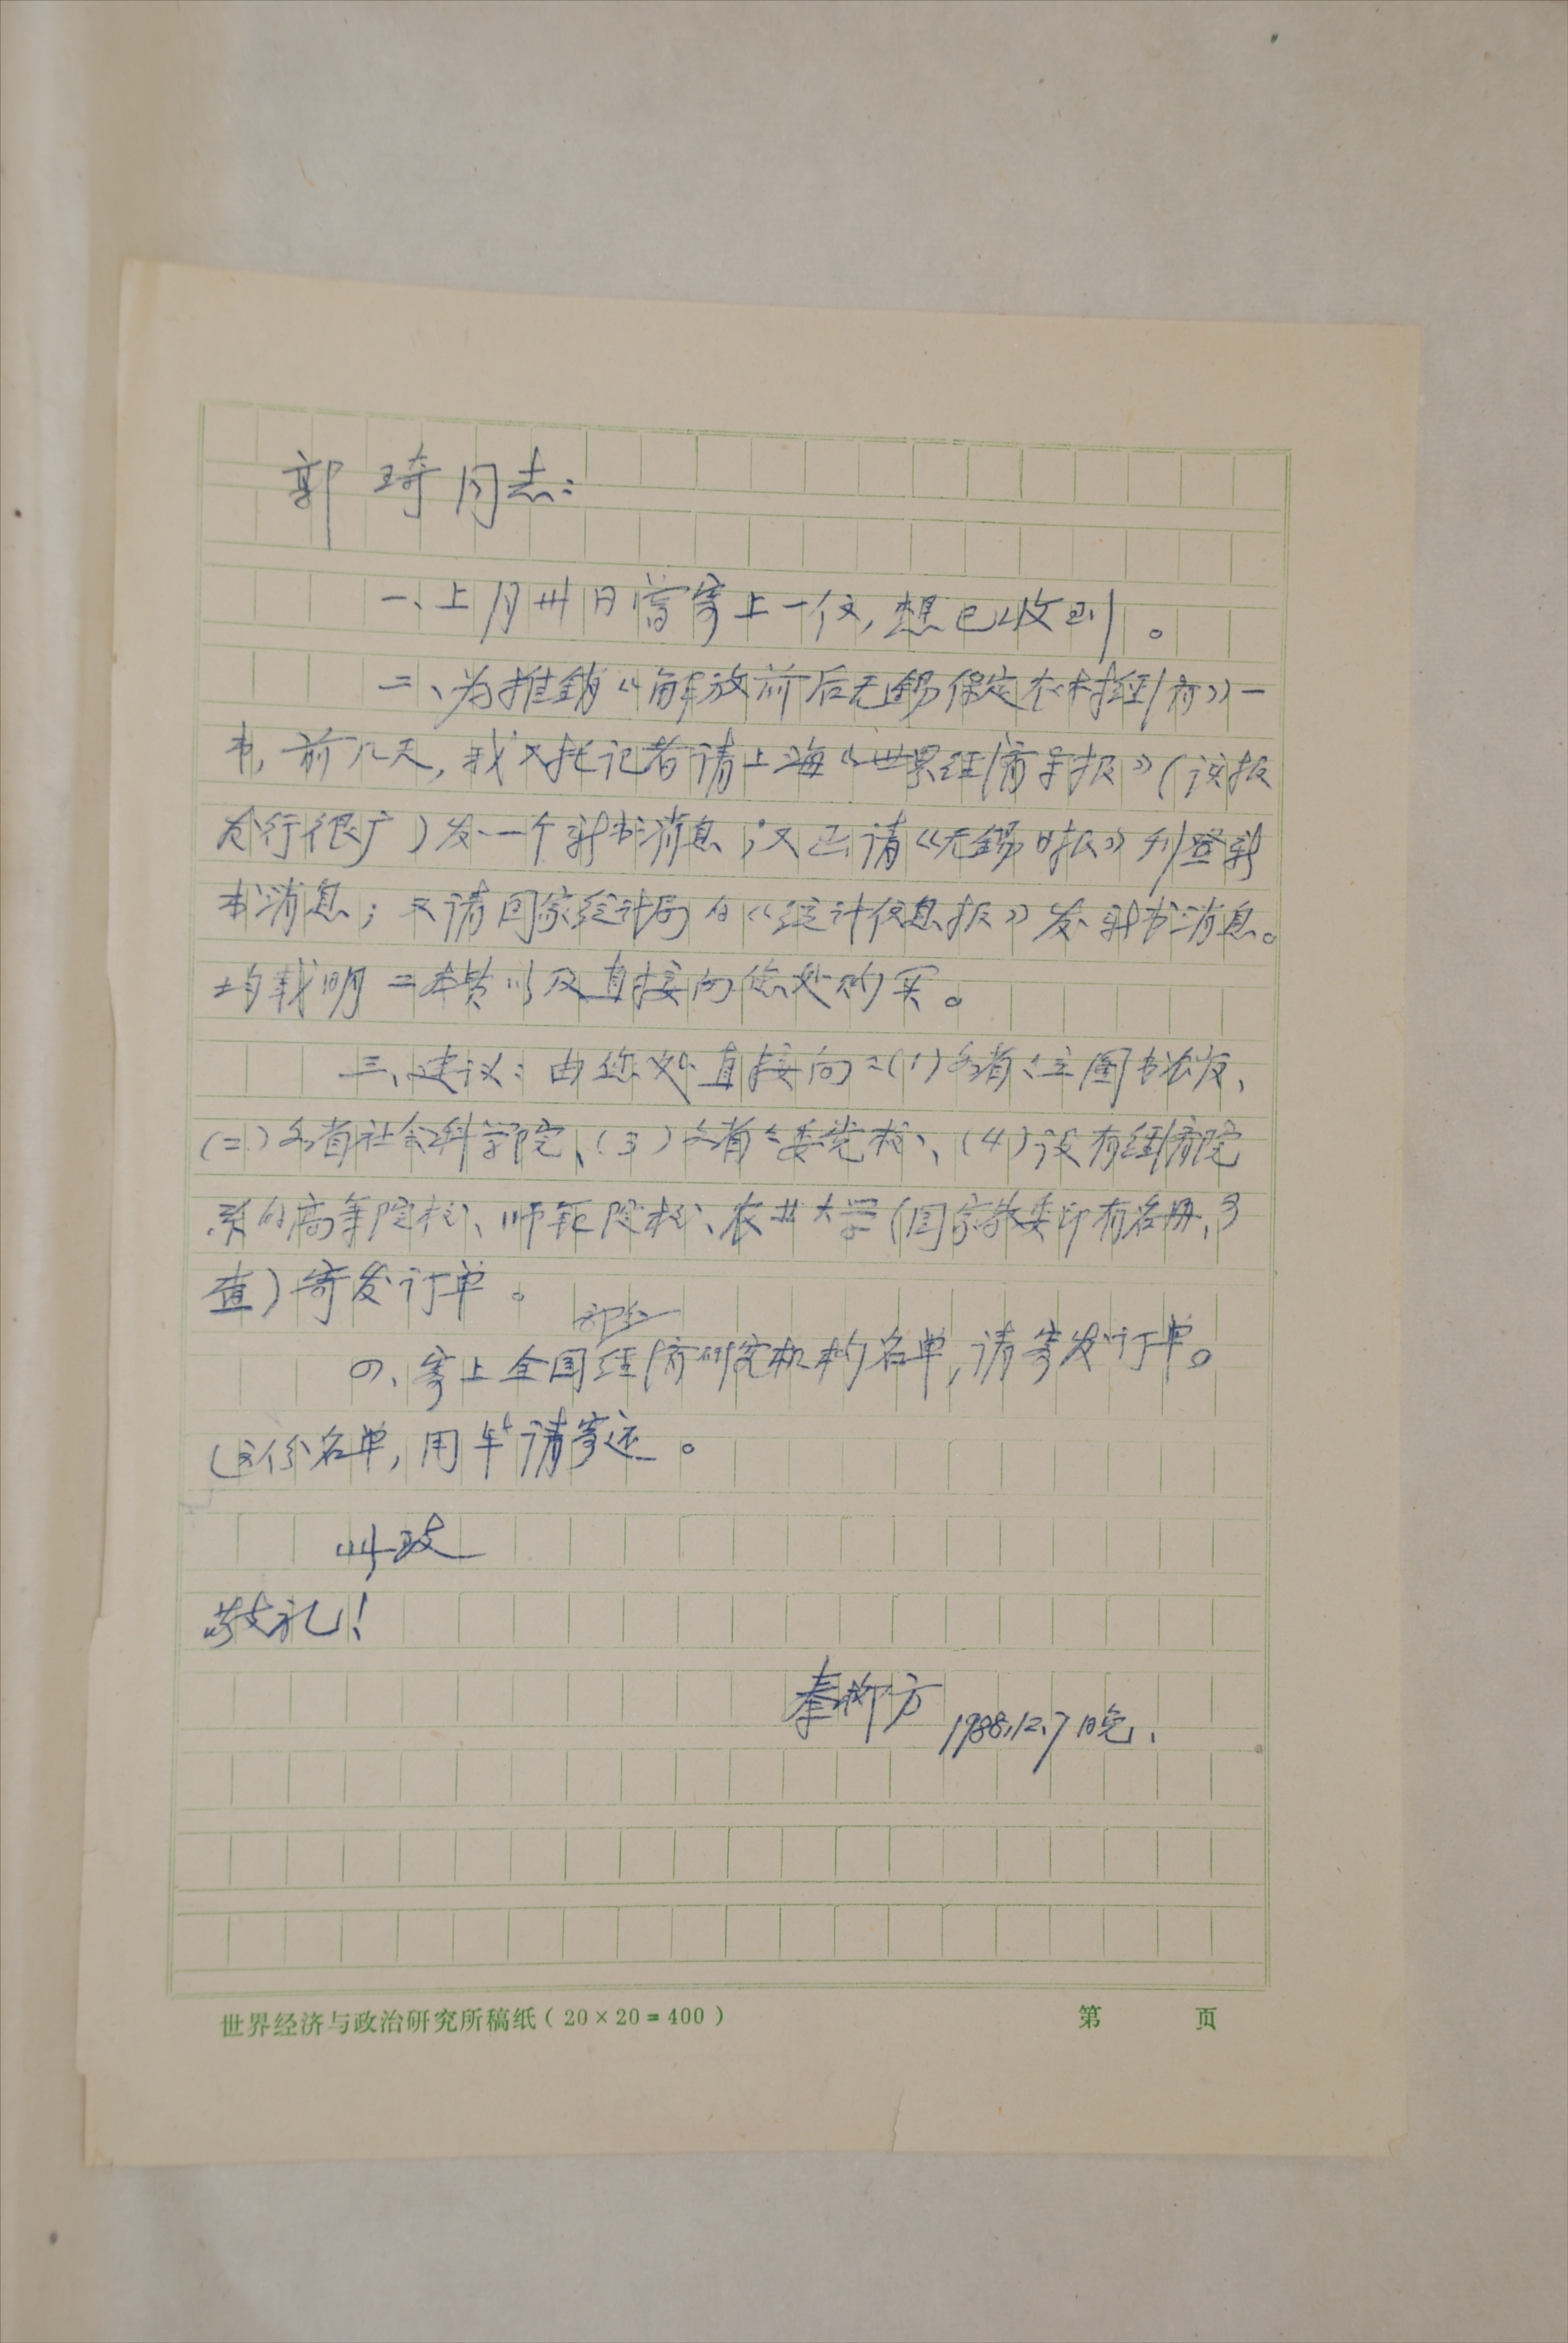 郭琦同志：
一、上月卅日曾寄上一信，想已收到。
二、为推销《解放前后无锡保定农村经济》一
书，前几天，我又托记者请上海《世界经济导报》（该报
发行很广）发一个新书消息；又函请《无锡日报》刊登新
书消息；又请国家统计局的《统计信息报》发新书消息。
均载明二本费以及直接向您处购买。
三、建议：由您处直接向：（1）各省、主图书
（二）各省社会科学院、（3）各省委党校、（4）设有经济院
系的高等院校、师范院校、农业大学（国家教委印有名册，可
查）寄发订单。
部分
四、寄上全国经济研究机构名单，请寄发订单。
这份名单，用毕请寄还。
此致
敬礼！
秦柳方 1988.12.7晚.
世界经济与政治研究所稿纸（20×20=400） 第 页